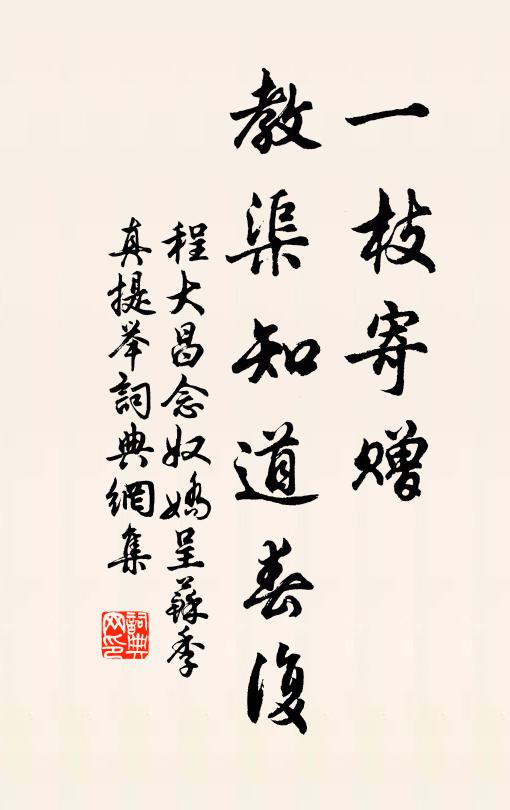 一枝寄赠
教渠知道春复
程大昌念奴娇呈蘇季
真提举詞典網集
詞典网印